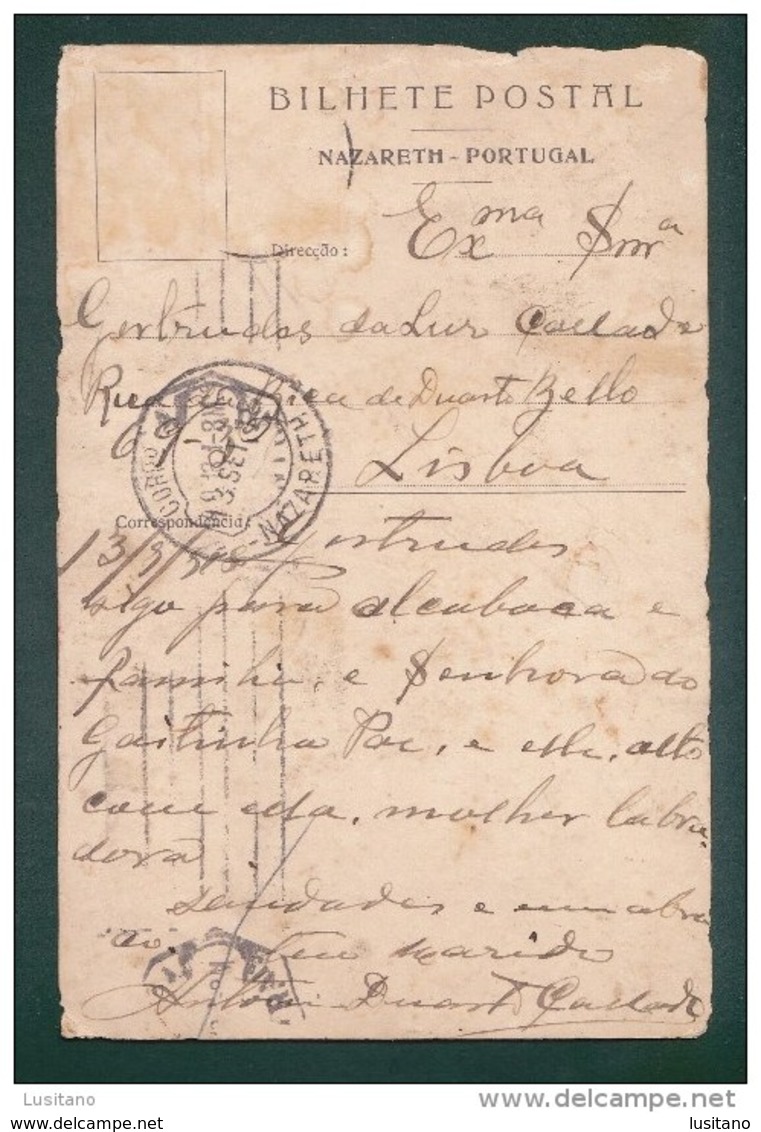 BILHETE POSTAL
NAZARETH - PORTUGAL
Direcção:
Exma Snra
Gertrudes da Luz Callado
Rua da Bica de Duarte Bello
69
Lisboa
CORREIO
NAZARETH
Correspondencia:
Gertrudes
sigo para alcobaca e
familia, e Senhora do
Gaitinha Pae, e elle, alto
como ella, mulher labra-
dora.
saudades e um abra
co. Teu marido
Antonio Duarte Callado
Lusitano
delcampe.net
lusitano.com
lusitano